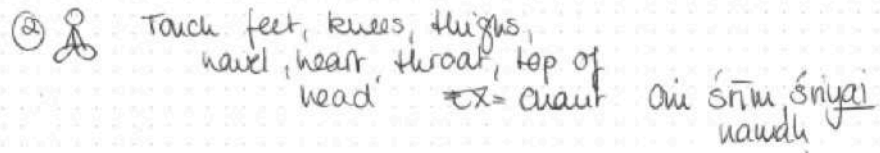 ② Touch feet, knees, thighs,
navel, heart, throat, top of
head = chant oṁ śrīm śriyai
namaḥ